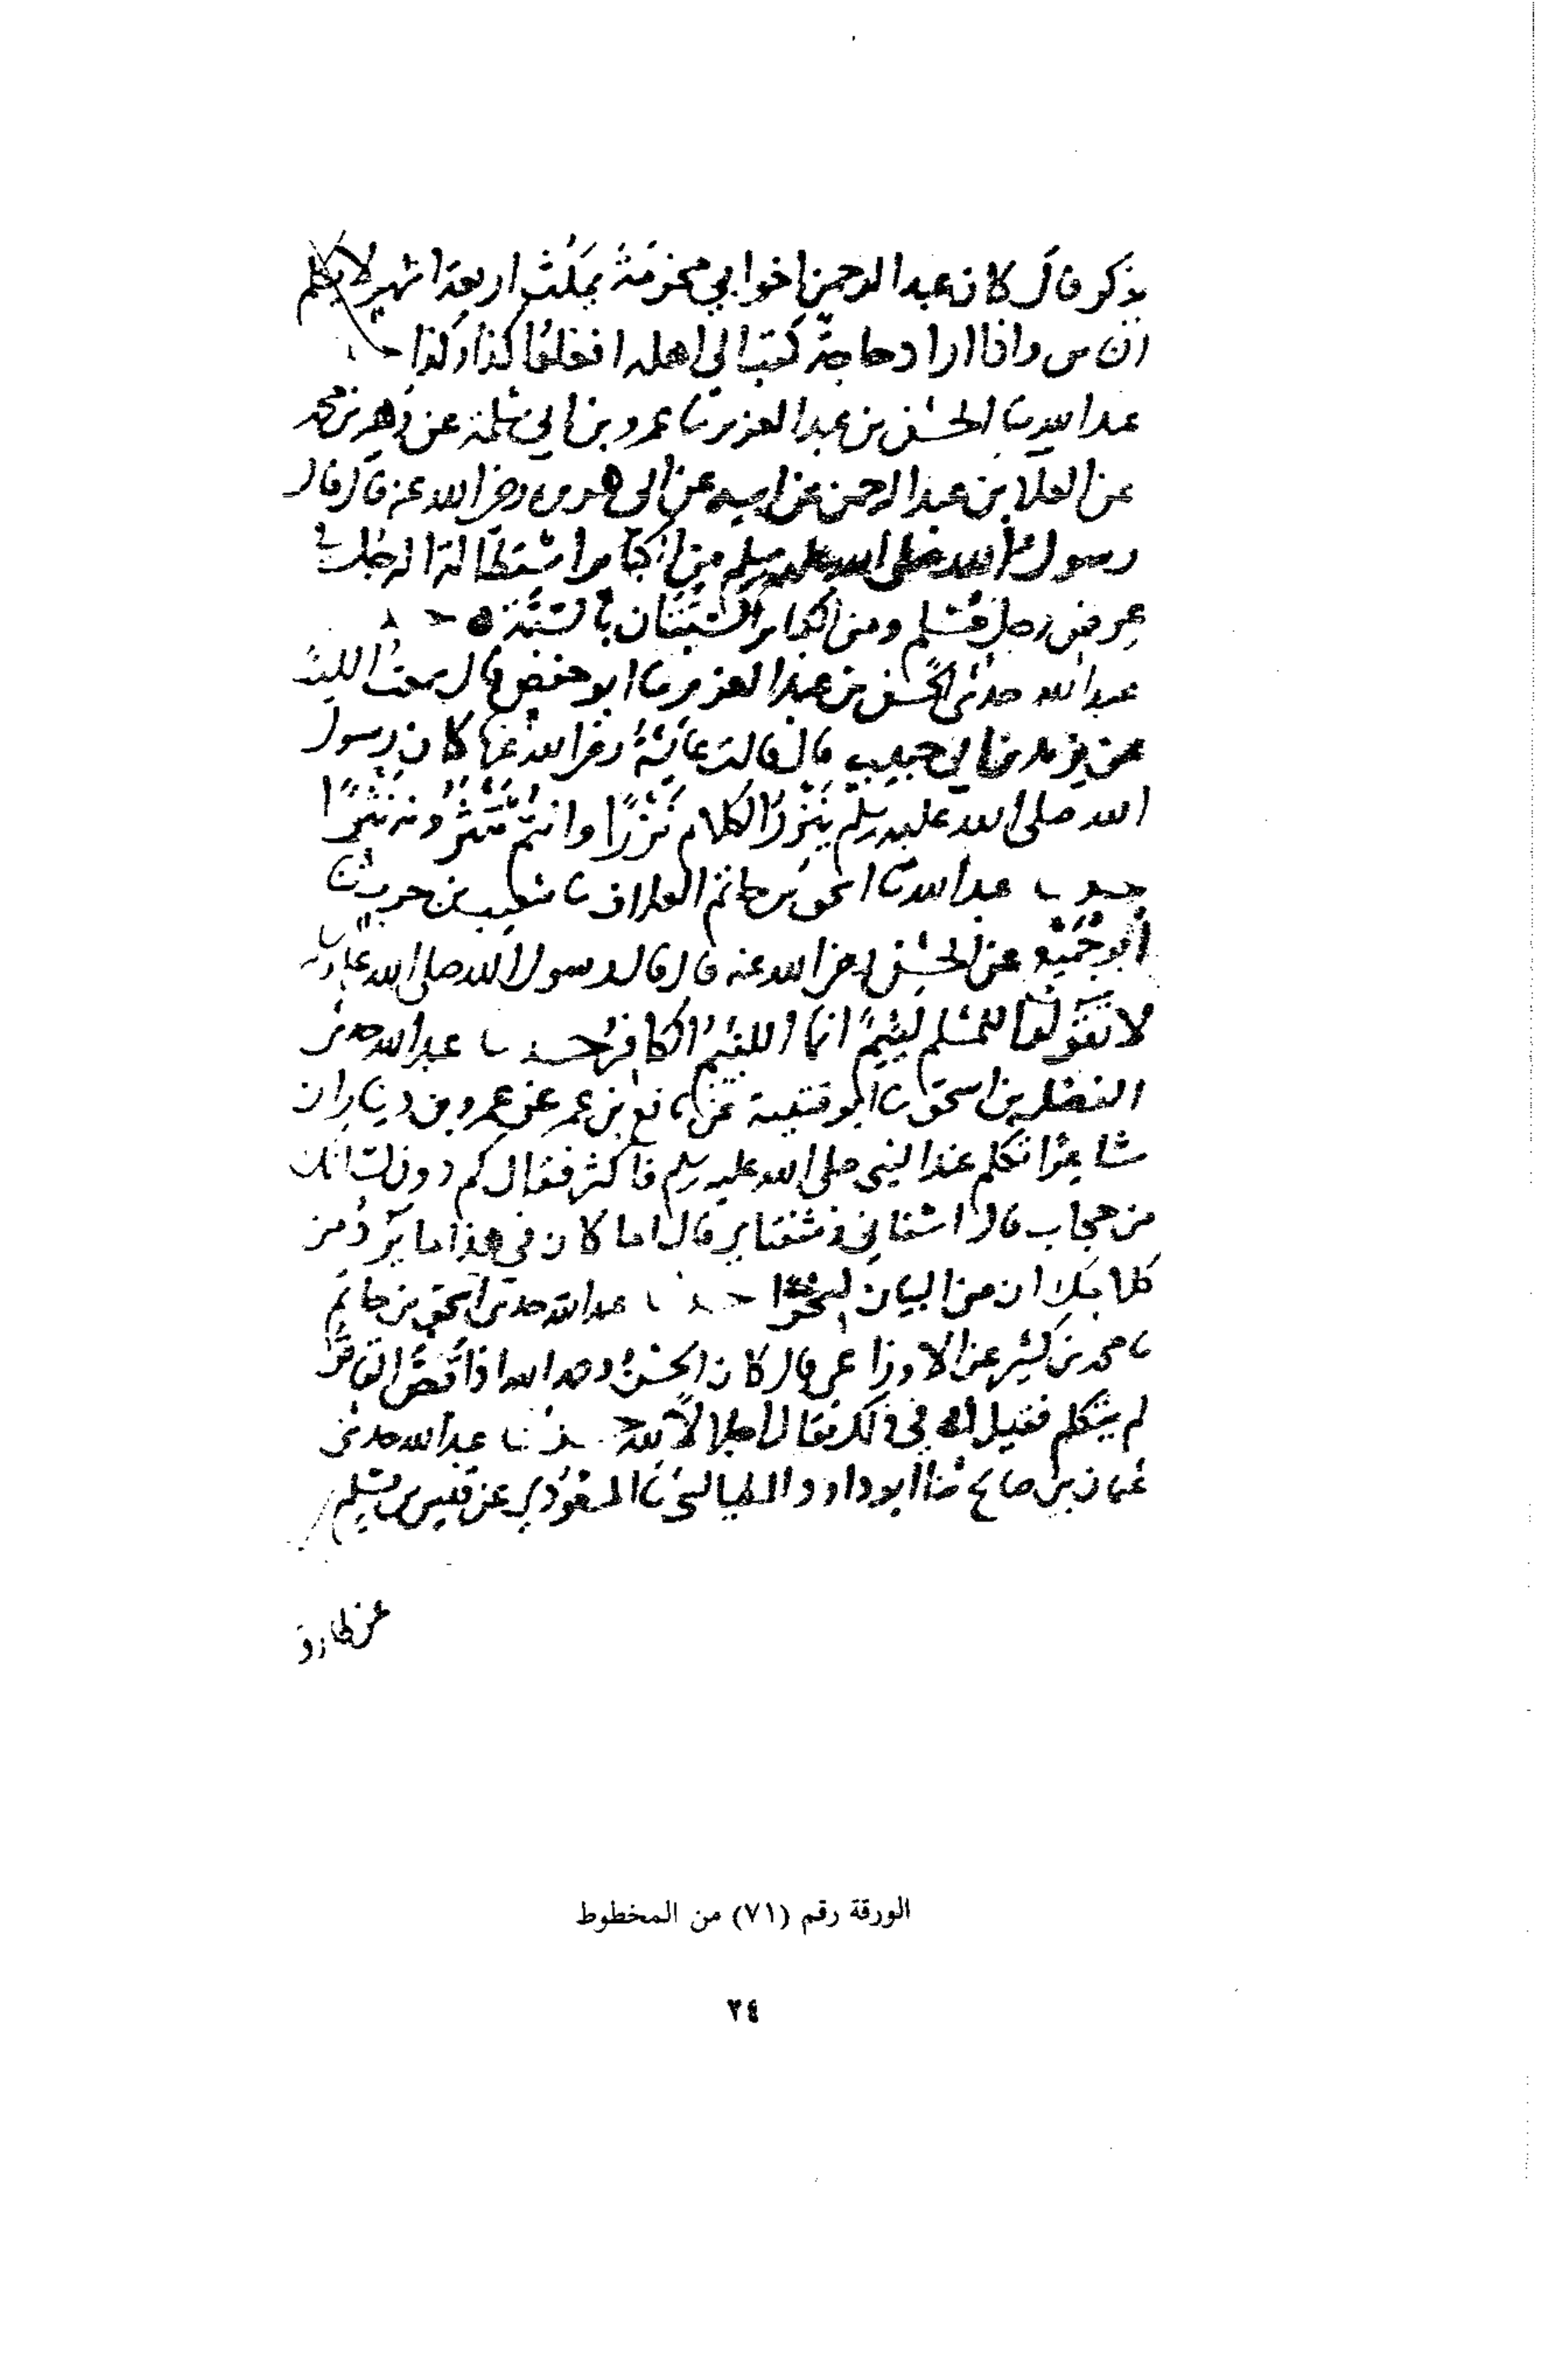 يذكر قال كان عبد الرحمن اخو ابي مخرمة يمكث اربعة اشهر لا يكلم
الناس واذا اراد حاجة كتب الى اهله افعلوا كذا وكذا
عبد الله ثنا الحسن بن عبد العزيز ثنا عمرو بن ابي سلمة عن زهير بن محمد
عن العلا بن عبد الرحمن عن ابيه عن ابي هريرة رضي الله عنه قال قال
رسول الله صلى الله عليه وسلم من الكبائر استطالة الرجل في
عرض رجل مسلم ومن الكبائر السبتان بالسبة ه
عبد الله حدثني الحسن بن عبد العزيز ثنا ابو حفص قال سمعت الليث
عن يزيد بن ابي حبيب قال قالت عائشة رضي الله عنها كان رسول
الله صلى الله عليه وسلم ينزر الكلام نزرًا وانتم تنثرونه نثرًا
حدثنا عبد الله ثنا اسحق بن حاتم العلاف ثنا شعيب بن حرب ثنا
ابو جميع عن الحسن رضي الله عنه قال قال رسول الله صلى الله عليه وسلم
لا تقولوا للمسلم لئيمٌ انما اللئيم الكافر حدثنا عبد الله حدثني
الفضل بن اسحق ثنا ابو قتيبة عن نافع بن عمر عن عمرو بن دينار ان
شاعرًا تكلم عند النبي صلى الله عليه وسلم فاكثر فقال كم دون لسانك
من حجاب قال اسناني وشفتاي قال اما كان في هذا ما يرد من
كلامك ان من البيان لسحرا حدثنا عبد الله حدثني اسحق بن حاتم
ثنا محمد بن كثير عن الاوزاعي قال كان الحسن رحمه الله اذا قص القاص
لم يتكلم فقيل له في ذلك فقال اجلالاً لله حدثنا عبد الله حدثني
عثمان بن صالح ثنا ابو داود الطيالسي ثنا المسعودي عن قيس بن مسلم
عن طارق
الورقة رقم (٧١) من المخطوط
٢٤